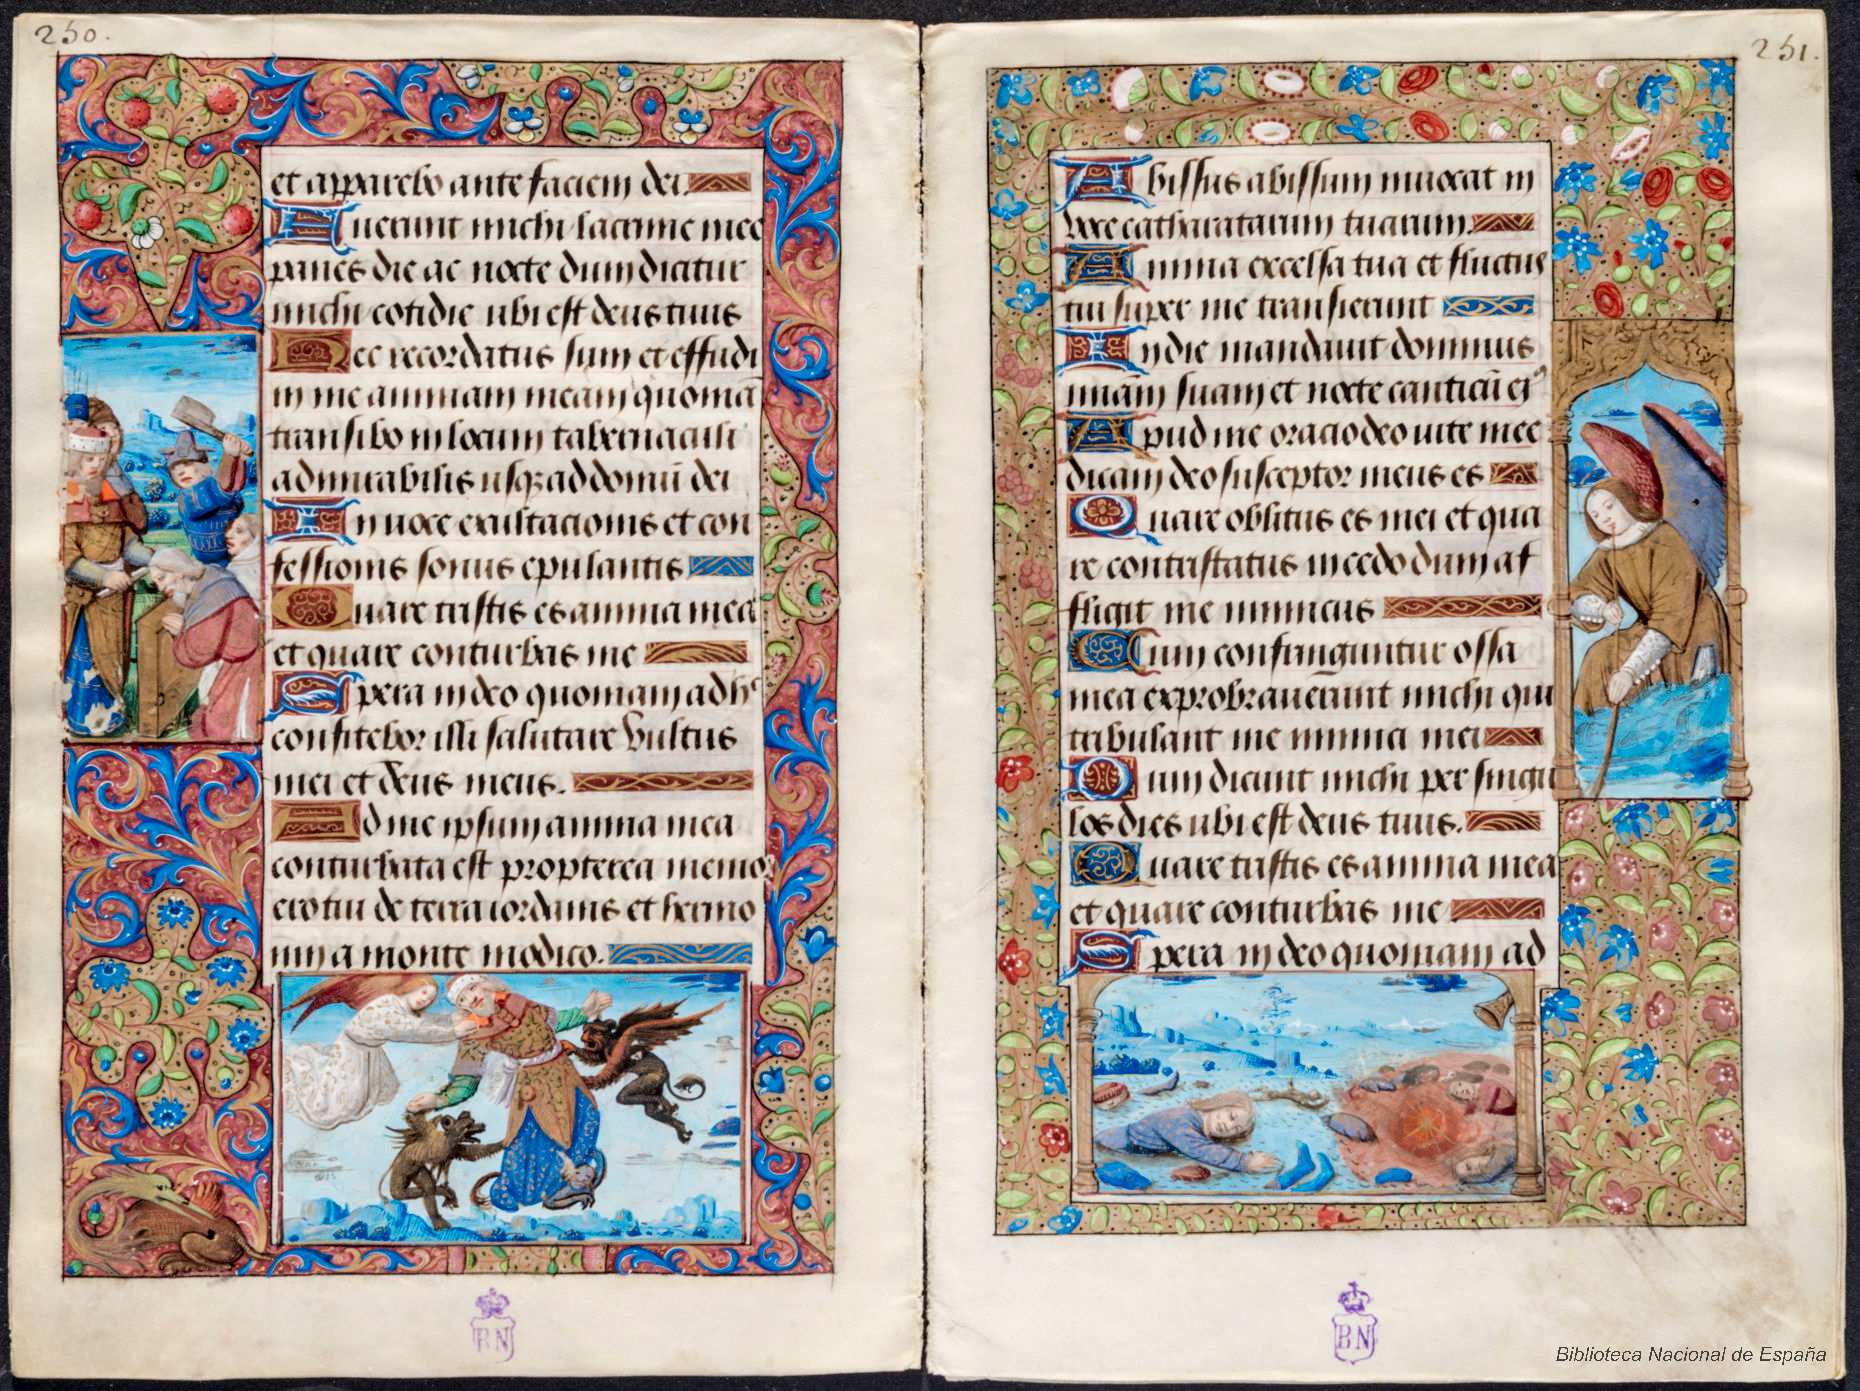 250.
et apparebo ante faciem dei.
Fuerunt michi lacrime mee
panes die ac nocte dum dicitur
michi cotidie ubi est deus tuus
Hec recordatus sum et effudi
in me animam meam quoniā
transibo in locum tabernaculi
admirabilis usq; ad domū dei
In voce exultacionis et con
fessionis sonus epulantis
Quare tristis es anima mea
et quare conturbas me
Spera in deo quoniam adhᶜ
confitebor illi salutare vultus
mei et deus meus.
Ad me ipsum anima mea
conturbata est propterea memor
ero tui de terra iordanis et hermo
nin a monte modico.
BN
251.
Abissus abissum invocat in
voce catharatarum tuarum.
Omnia excelsa tua et fluctus
tui super me transierunt
In die mandavit dominus
miām suam et nocte canticū eiꝰ
Apud me oracio deo vite mee
dicam deo susceptor meus es
Quare oblitus es mei et qua
re contristatus incedo dum af
fligit me inimicus
Cum confringuntur ossa
mea exprobraverunt michi qui
tribulant me inimici mei
Dum dicunt michi per singu
los dies ubi est deus tuus.
Quare tristis es anima mea
et quare conturbas me
Spera in deo quoniam ad
BN
Biblioteca Nacional de España